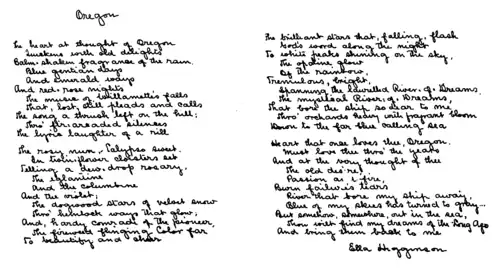 Oregon
The heart at thought of Oregon
Quickens with old delights
Balm-shaken fragrance of the rain,
Blue gentian days
And emerald ways
And red-rose nights
The music of Willamette's falls
That, lost, still pleads and calls
The song a thrush left on the hill;
Thro' fir-areaded silences
The lyric laughter of a rill
The rosy nun, Calypso sweet.
In twinflower cloisters set
Telling a dew-drop rosary,
The eglantine
And the columbine
And the violet;
The dogwood stars of velvet snow
Thro' hemlock woods that glow;
And, hardy comrade of the pioneer,
The fireweed flinging color far
To beautify and cheer
The brilliant stars that, falling, flash
God's word along the night
To white peaks shining on the sky,
The opaline glow
Of the rainbow,
Tremulous, bright,
Spanning the laurelled River of Dreams,
The mystical River of Dreams,
That bore the ship so dear to me
Thro' orchards heavy with fragrant bloom
Down to the far blue calling sea
Heart that once loves thee, Oregon,
Must love thee thro' the years
And at the very thought of thee
The old desire!
Passion as fire,
Burn failure's tears
River that bore my ship away,
Blue of my skies has turned to gray...
But somehow, somewhere, out in the sea,
Thou wilt find my dreams of the Long Ago
And bring them back to me
Ella Higginson